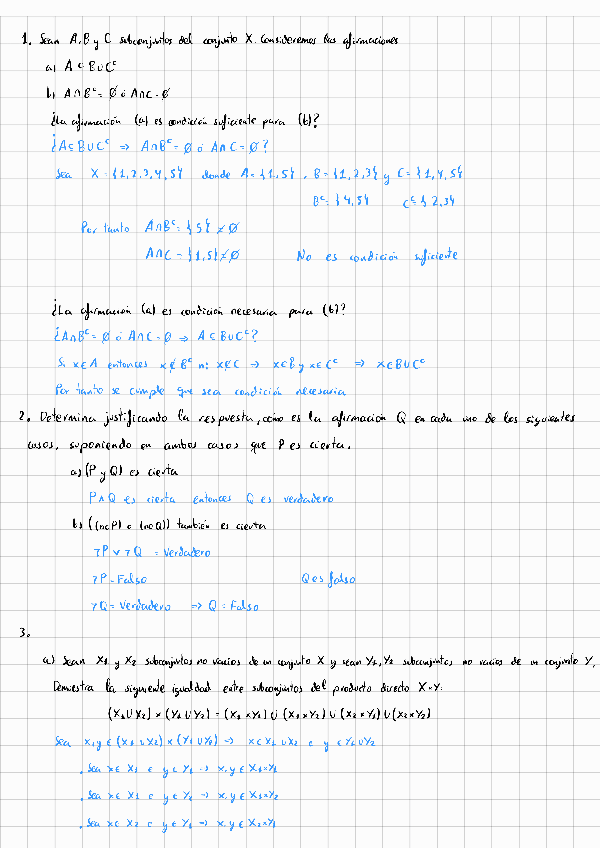 1. Sean A, B y C subconjuntos del conjunto X. Consideremos las afirmaciones
a) A ⊂ B∪Cᶜ
b) A∩Bᶜ = ∅ ó A∩C = ∅
¿La afirmación (a) es condición suficiente para (b)?
¿A ⊆ B∪Cᶜ ⇒ A∩Bᶜ = ∅ ó A∩C = ∅?
Sea X = {1,2,3,4,5} donde A = {1,5}, B = {1,2,3} y C = {1,4,5}
Bᶜ = {4,5} Cᶜ = {2,3}
Por tanto A∩Bᶜ = {5} ≠ ∅
A∩C = {1,5} ≠ ∅ No es condición suficiente
¿La afirmación (a) es condición necesaria para (b)?
¿A∩Bᶜ = ∅ ó A∩C = ∅ ⇒ A ⊂ B∪Cᶜ?
Si x∈A entonces x∉Bᶜ ni x∉C → x∈B y x∈Cᶜ ⇒ x∈B∪Cᶜ
Por tanto se cumple que sea condición necesaria
2. Determina justificando la respuesta, cómo es la afirmación Q en cada uno de los siguientes
casos, suponiendo en ambos casos que P es cierta.
a) (P y Q) es cierta
P∧Q es cierta entonces Q es verdadero
b) ((no P) o (no Q)) también es cierta
¬P ∨ ¬Q = Verdadero
¬P = Falso Q es falso
¬Q = Verdadero ⇒ Q = Falso
3.
a) Sean X₁ y X₂ subconjuntos no vacíos de un conjunto X y sean Y₁, Y₂ subconjuntos no vacíos de un conjunto Y,
Demuestra la siguiente igualdad entre subconjuntos del producto directo X×Y:
(X₁∪X₂) × (Y₁∪Y₂) = (X₁×Y₁) ∪ (X₁×Y₂) ∪ (X₂×Y₁) ∪ (X₂×Y₂)
Sea x,y ∈ (X₁∪X₂) × (Y₁∪Y₂) → x∈X₁∪X₂ e y∈Y₁∪Y₂
. Sea x∈X₁ e y∈Y₁ → x,y ∈ X₁×Y₁
. Sea x∈X₁ e y∈Y₂ → x,y ∈ X₁×Y₂
. Sea x∈X₂ e y∈Y₁ → x,y ∈ X₂×Y₁